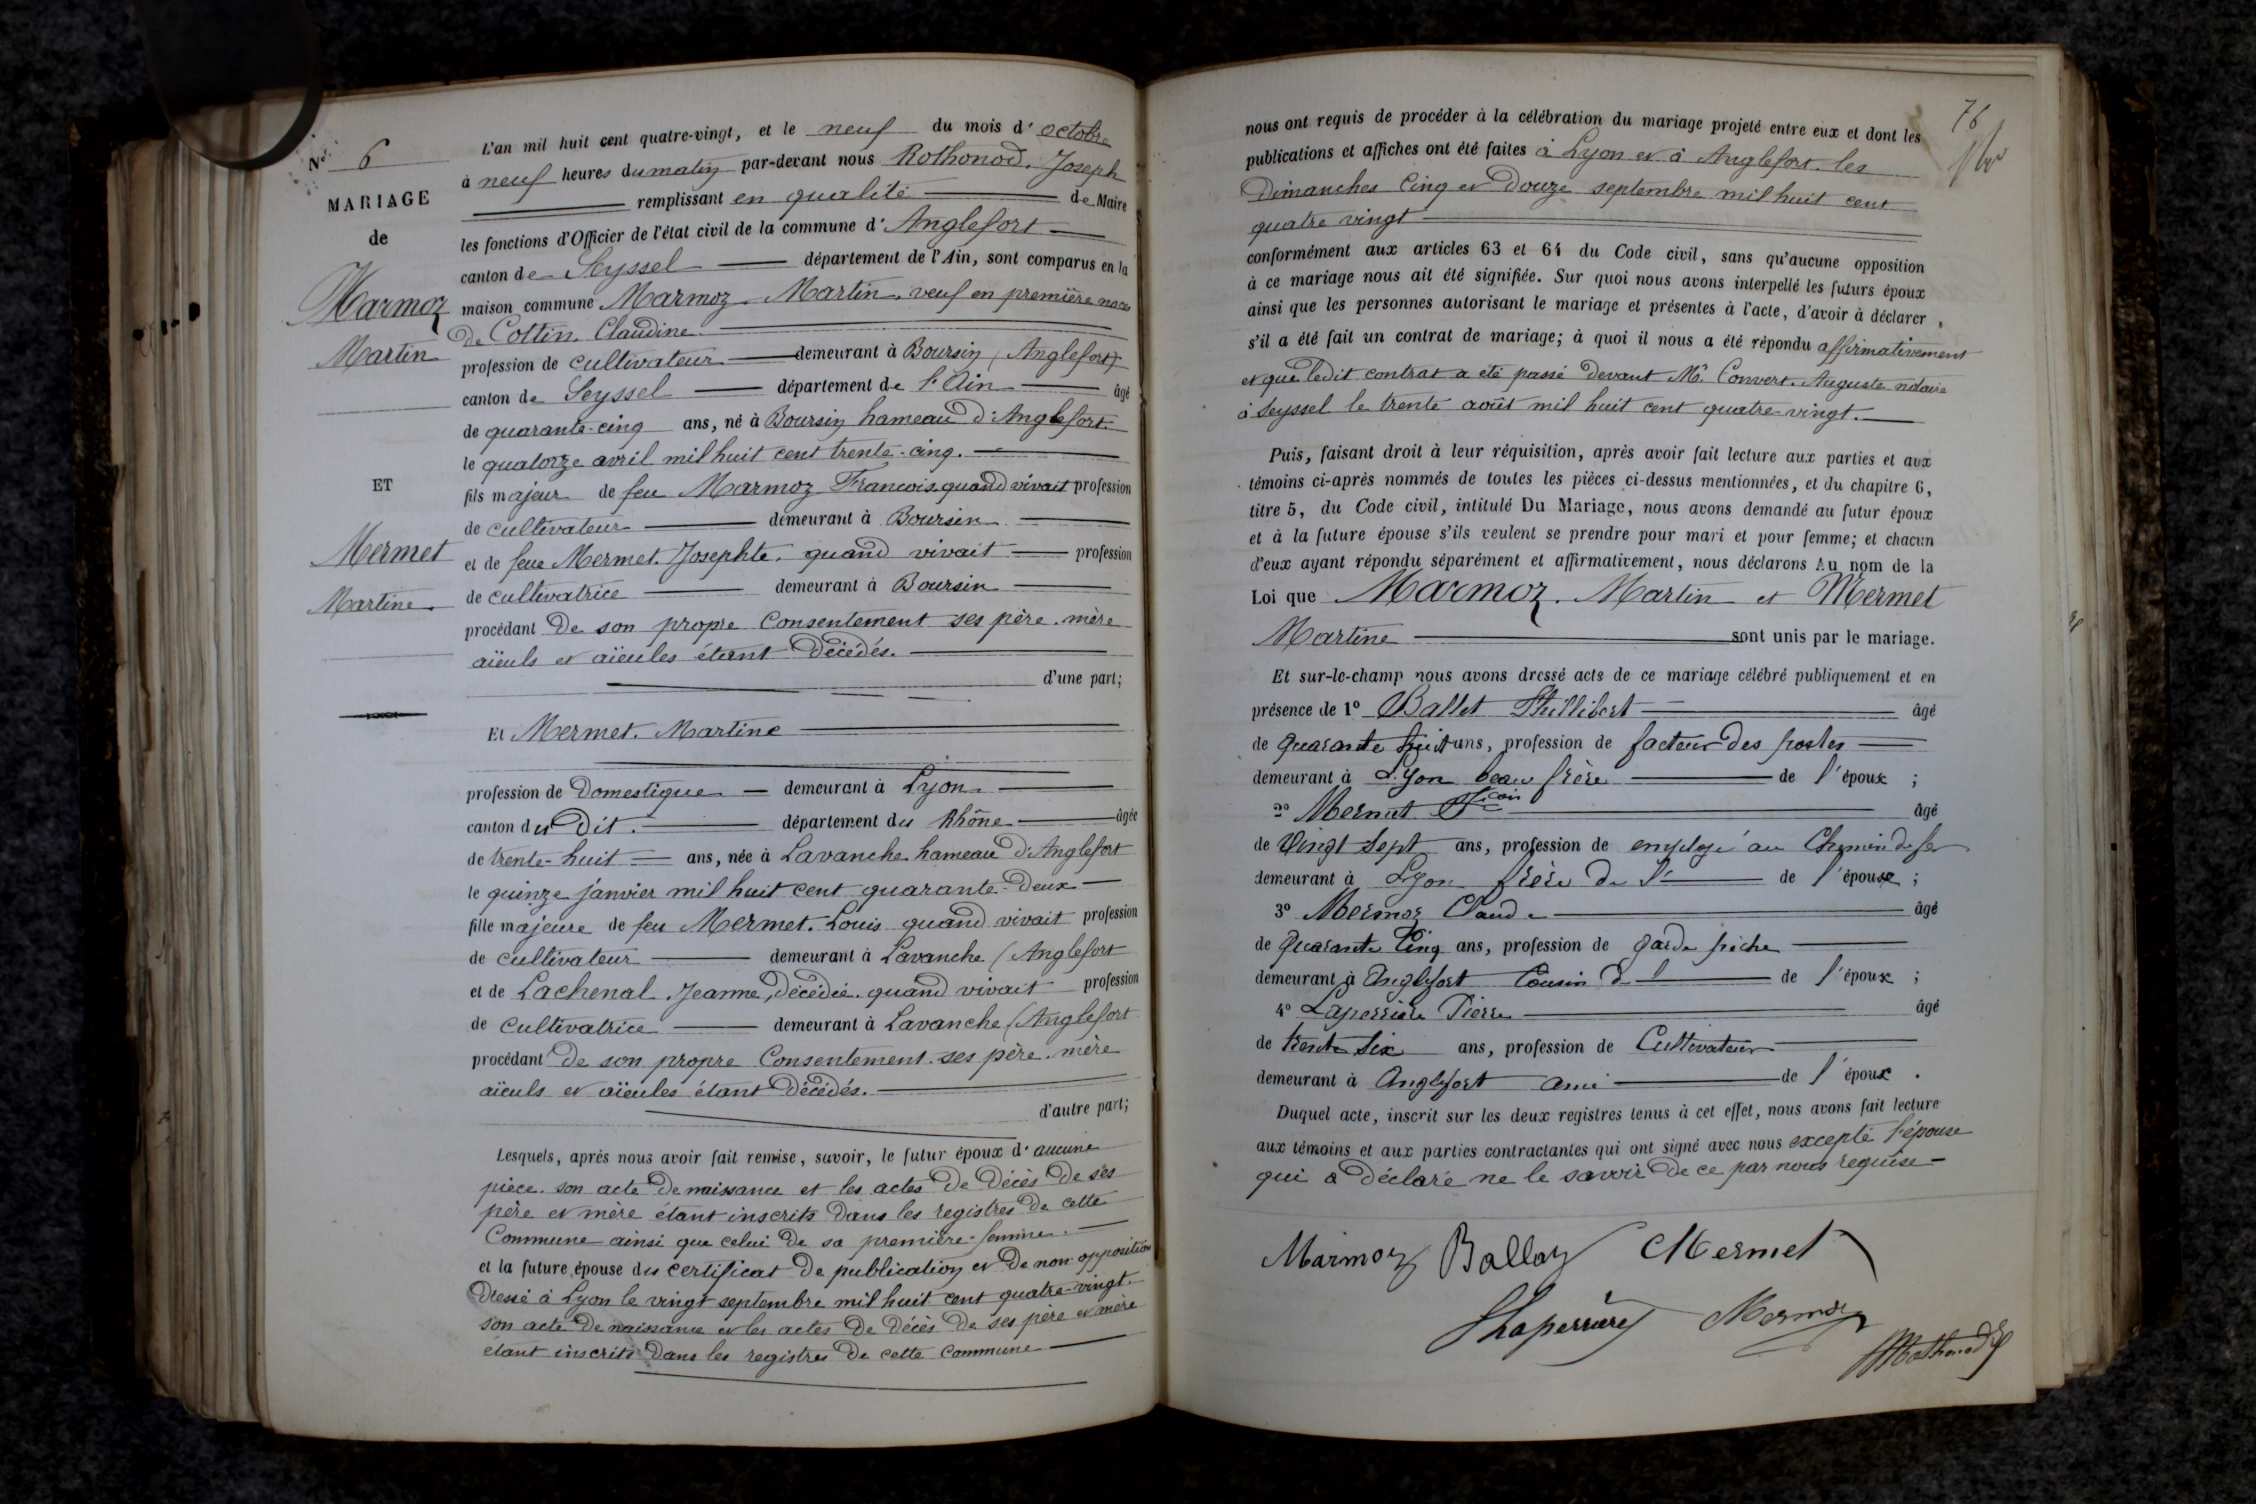 N° 6
MARIAGE
de
Marmoz
Martin
ET
Mermet
Martine
L'an mil huit cent quatre-vingt, et le neuf du mois d'octobre
à neuf heures du matin par-devant nous Rothonod, Joseph
remplissant en qualité de Maire
les fonctions d'Officier de l'état civil de la commune d'Anglefort
canton de Seyssel département de l'Ain, sont comparus en la
maison commune Marmoz. Martin, veuf en première noces
de Cottin, Claudine
profession de cultivateur demeurant à Boursin (Anglefort)
canton de Seyssel département de l'Ain âgé
de quarante-cinq ans, né à Boursin hameau d'Anglefort.
le quatorze avril mil huit cent trente-cinq.
fils majeur de feu Marmoz François quand vivait profession
de cultivateur demeurant à Boursin
et de feue Mermet. Josephte. quand vivait profession
de cultivatrice demeurant à Boursin
procédant de son propre Consentement ses père. mère
aïeuls et aïeules étant décédés.
d'une part;
Et Mermet. Martine
profession de domestique demeurant à Lyon.
canton du dit. département du Rhône âgée
de trente-huit ans, née à Lavanche hameau d'Anglefort
le quinze janvier mil huit cent quarante-deux
fille majeure de feu Mermet. Louis quand vivait profession
de cultivateur demeurant à Lavanche (Anglefort
et de Lachenal. Jeanne, décédée. quand vivait profession
de cultivatrice demeurant à Lavanche (Anglefort
procédant de son propre Consentement. ses père. mère
aïeuls et aïeules étant décédés.
d'autre part;
Lesquels, après nous avoir fait remise, savoir, le futur époux d'aucune
pièce. son acte de naissance et les actes de décès de ses
père et mère étant inscrits dans les registres de cette
Commune ainsi que celui de sa première femme.
et la future épouse du certificat de publication et de non opposition
dressé à Lyon le vingt septembre mil huit cent quatre-vingt.
son acte de naissance et les actes de décès de ses père et mère
étant inscrits dans les registres de cette commune
76
nous ont requis de procéder à la célébration du mariage projeté entre eux et dont les
publications et affiches ont été faites à Lyon et à Anglefort. les
Dimanches Cinq et Douze septembre mil huit cent
quatre vingt
conformément aux articles 63 et 64 du Code civil, sans qu'aucune opposition
à ce mariage nous ait été signifiée. Sur quoi nous avons interpellé les futurs époux
ainsi que les personnes autorisant le mariage et présentes à l'acte, d'avoir à déclarer,
s'il a été fait un contrat de mariage; à quoi il nous a été répondu affirmativement
et que ledit contrat a été passé devant Me. Convert. Auguste notaire
à Seyssel le trente août mil huit cent quatre-vingt.
Puis, faisant droit à leur réquisition, après avoir fait lecture aux parties et aux
témoins ci-après nommés de toutes les pièces ci-dessus mentionnées, et du chapitre 6,
titre 5, du Code civil, intitulé Du Mariage, nous avons demandé au futur époux
et à la future épouse s'ils veulent se prendre pour mari et pour femme; et chacun
d'eux ayant répondu séparément et affirmativement, nous déclarons Au nom de la
Loi que Marmoz. Martin et Mermet
Martine sont unis par le mariage.
Et sur-le-champ nous avons dressé acte de ce mariage célébré publiquement et en
présence de 1° Ballet Phillibert âgé
de quarante huit ans, profession de facteur des postes
demeurant à Lyon beau frère de l'époux;
2° Mermet âgé
de Vingt Sept ans, profession de employé au Chemin de fer
demeurant à Lyon frère de l' de l'épouse;
3° Mermoz Claude âgé
de Quarante Cinq ans, profession de garde pêche
demeurant à Anglefort Cousin de l de l'époux;
4° Laperrière Pierre âgé
de trente Six ans, profession de Cultivateur
demeurant à Anglefort ami de l'époux.
Duquel acte, inscrit sur les deux registres tenus à cet effet, nous avons fait lecture
aux témoins et aux parties contractantes qui ont signé avec nous excepté l'épouse
qui a déclaré ne le savoir de ce par nous requise
Marmoz Ballay Mermet
Laperrière Mermoz
Rothonod